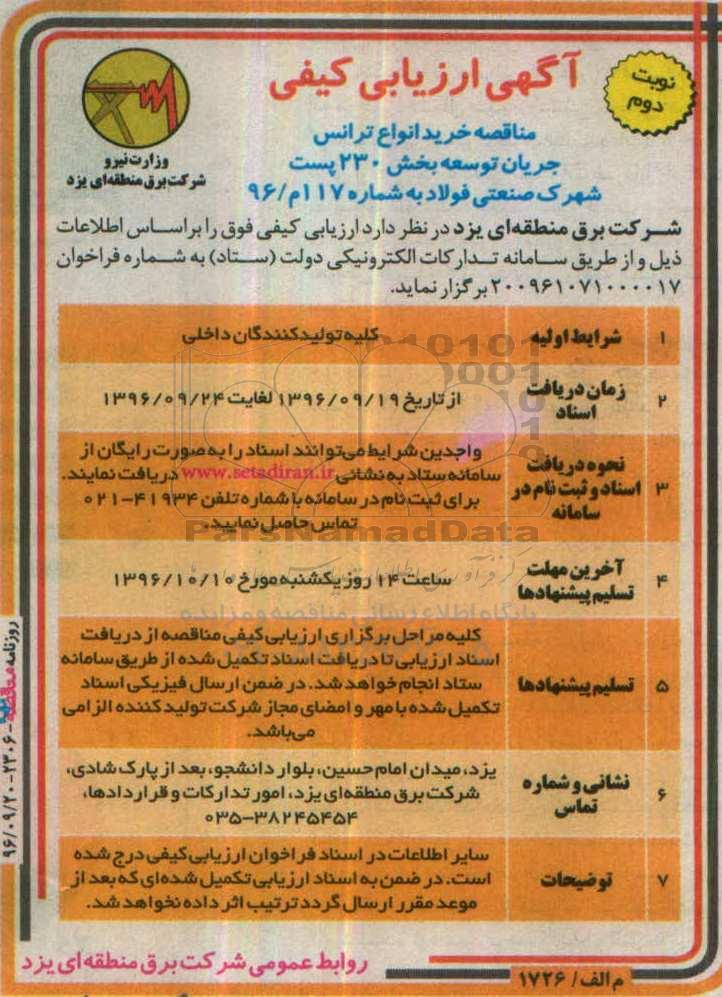 آگهی ارزیابی کیفی
نوبت
دوم
مناقصه خرید انواع ترانس
جریان توسعه بخش ۲۳۰ پست
شهرک صنعتی فولاد به شماره ۱۱۷م/۹۶
وزارت نیرو
شرکت برق منطقه‌ای یزد
شرکت برق منطقه‌ای یزد در نظر دارد ارزیابی کیفی فوق را براساس اطلاعات
ذیل و از طریق سامانه تدارکات الکترونیکی دولت (ستاد) به شماره فراخوان
۲۰۰۹۶۱۰۷۱۰۰۰۰۱۷ برگزار نماید.
۱ شرایط اولیه کلیه تولیدکنندگان داخلی
۲ زمان دریافت
اسناد
از تاریخ ۱۳۹۶/۰۹/۱۹ لغایت ۱۳۹۶/۰۹/۲۴
۳ نحوه دریافت
اسناد و ثبت نام در
سامانه
واجدین شرایط می‌توانند اسناد را به صورت رایگان از
سامانه ستاد به نشانی www.setadiran.ir دریافت نمایند.
برای ثبت نام در سامانه با شماره تلفن ۴۱۹۳۴-۰۲۱
تماس حاصل نمایید.
۴ آخرین مهلت
تسلیم پیشنهادها
ساعت ۱۴ روز یکشنبه مورخ ۱۳۹۶/۱۰/۱۰
۵ تسلیم پیشنهادها
کلیه مراحل برگزاری ارزیابی کیفی مناقصه از دریافت
اسناد ارزیابی تا دریافت اسناد تکمیل شده از طریق سامانه
ستاد انجام خواهد شد. در ضمن ارسال فیزیکی اسناد
تکمیل شده با مهر و امضای مجاز شرکت تولید کننده الزامی
می‌باشد.
۶ نشانی و شماره
تماس
یزد، میدان امام حسین، بلوار دانشجو، بعد از پارک شادی،
شرکت برق منطقه‌ای یزد، امور تدارکات و قراردادها،
۰۳۵-۳۸۲۴۵۴۵۴
۷ توضیحات
سایر اطلاعات در اسناد فراخوان ارزیابی کیفی درج شده
است. در ضمن به اسناد ارزیابی تکمیل شده‌ای که بعد از
موعد مقرر ارسال گردد ترتیب اثر داده نخواهد شد.
روابط عمومی شرکت برق منطقه‌ای یزد
م الف/ ۱۷۲۶
روزنامه مناقصه - ۲۳۰۶ - ۹۶/۰۹/۲۰
ParsNamadData
پایگاه اطلاع رسانی مناقصه و مزایده